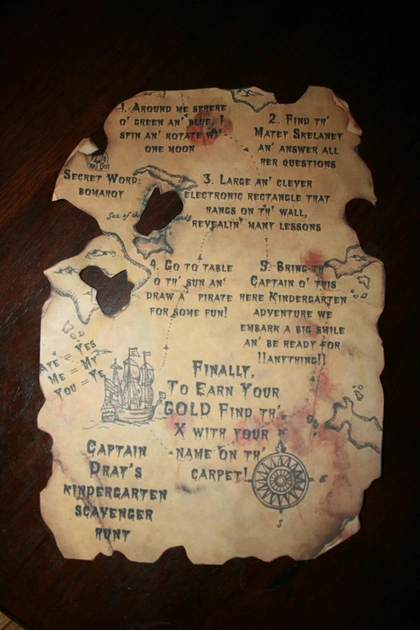 1. AROUND ME SPHERE
O' GREEN AN' BLUE, I
SPIN AN' ROTATE WI'
ONE MOON
2. FIND TH'
MATEY SKELANET
AN' ANSWER ALL
HER QUESTIONS
SECRET WORD:
BOMAHOT
3. LARGE AN' CLEVER
ELECTRONIC RECTANGLE THAT
HANGS ON TH' WALL,
REVEALIN' MANY LESSONS
Sea of the
4. GO TO TABLE
O' TH' SUN AN'
DRAW A' PIRATE
FOR SOME FUN!
5. BRING TH'
CAPTAIN O' THIS
HERE KINDERGARTEN
ADVENTURE WE
EMBARK A BIG SMILE
AN' BE READY FOR
!!ANYTHING!!
AYE = YES
ME = MY
YOU = YE
FINALLY,
TO EARN YOUR
GOLD FIND TH'
X WITH YOUR
NAME ON TH'
CARPET!
CAPTAIN
DRAT'S
KINDERGARTEN
SCAVENGER
HUNT
E
S